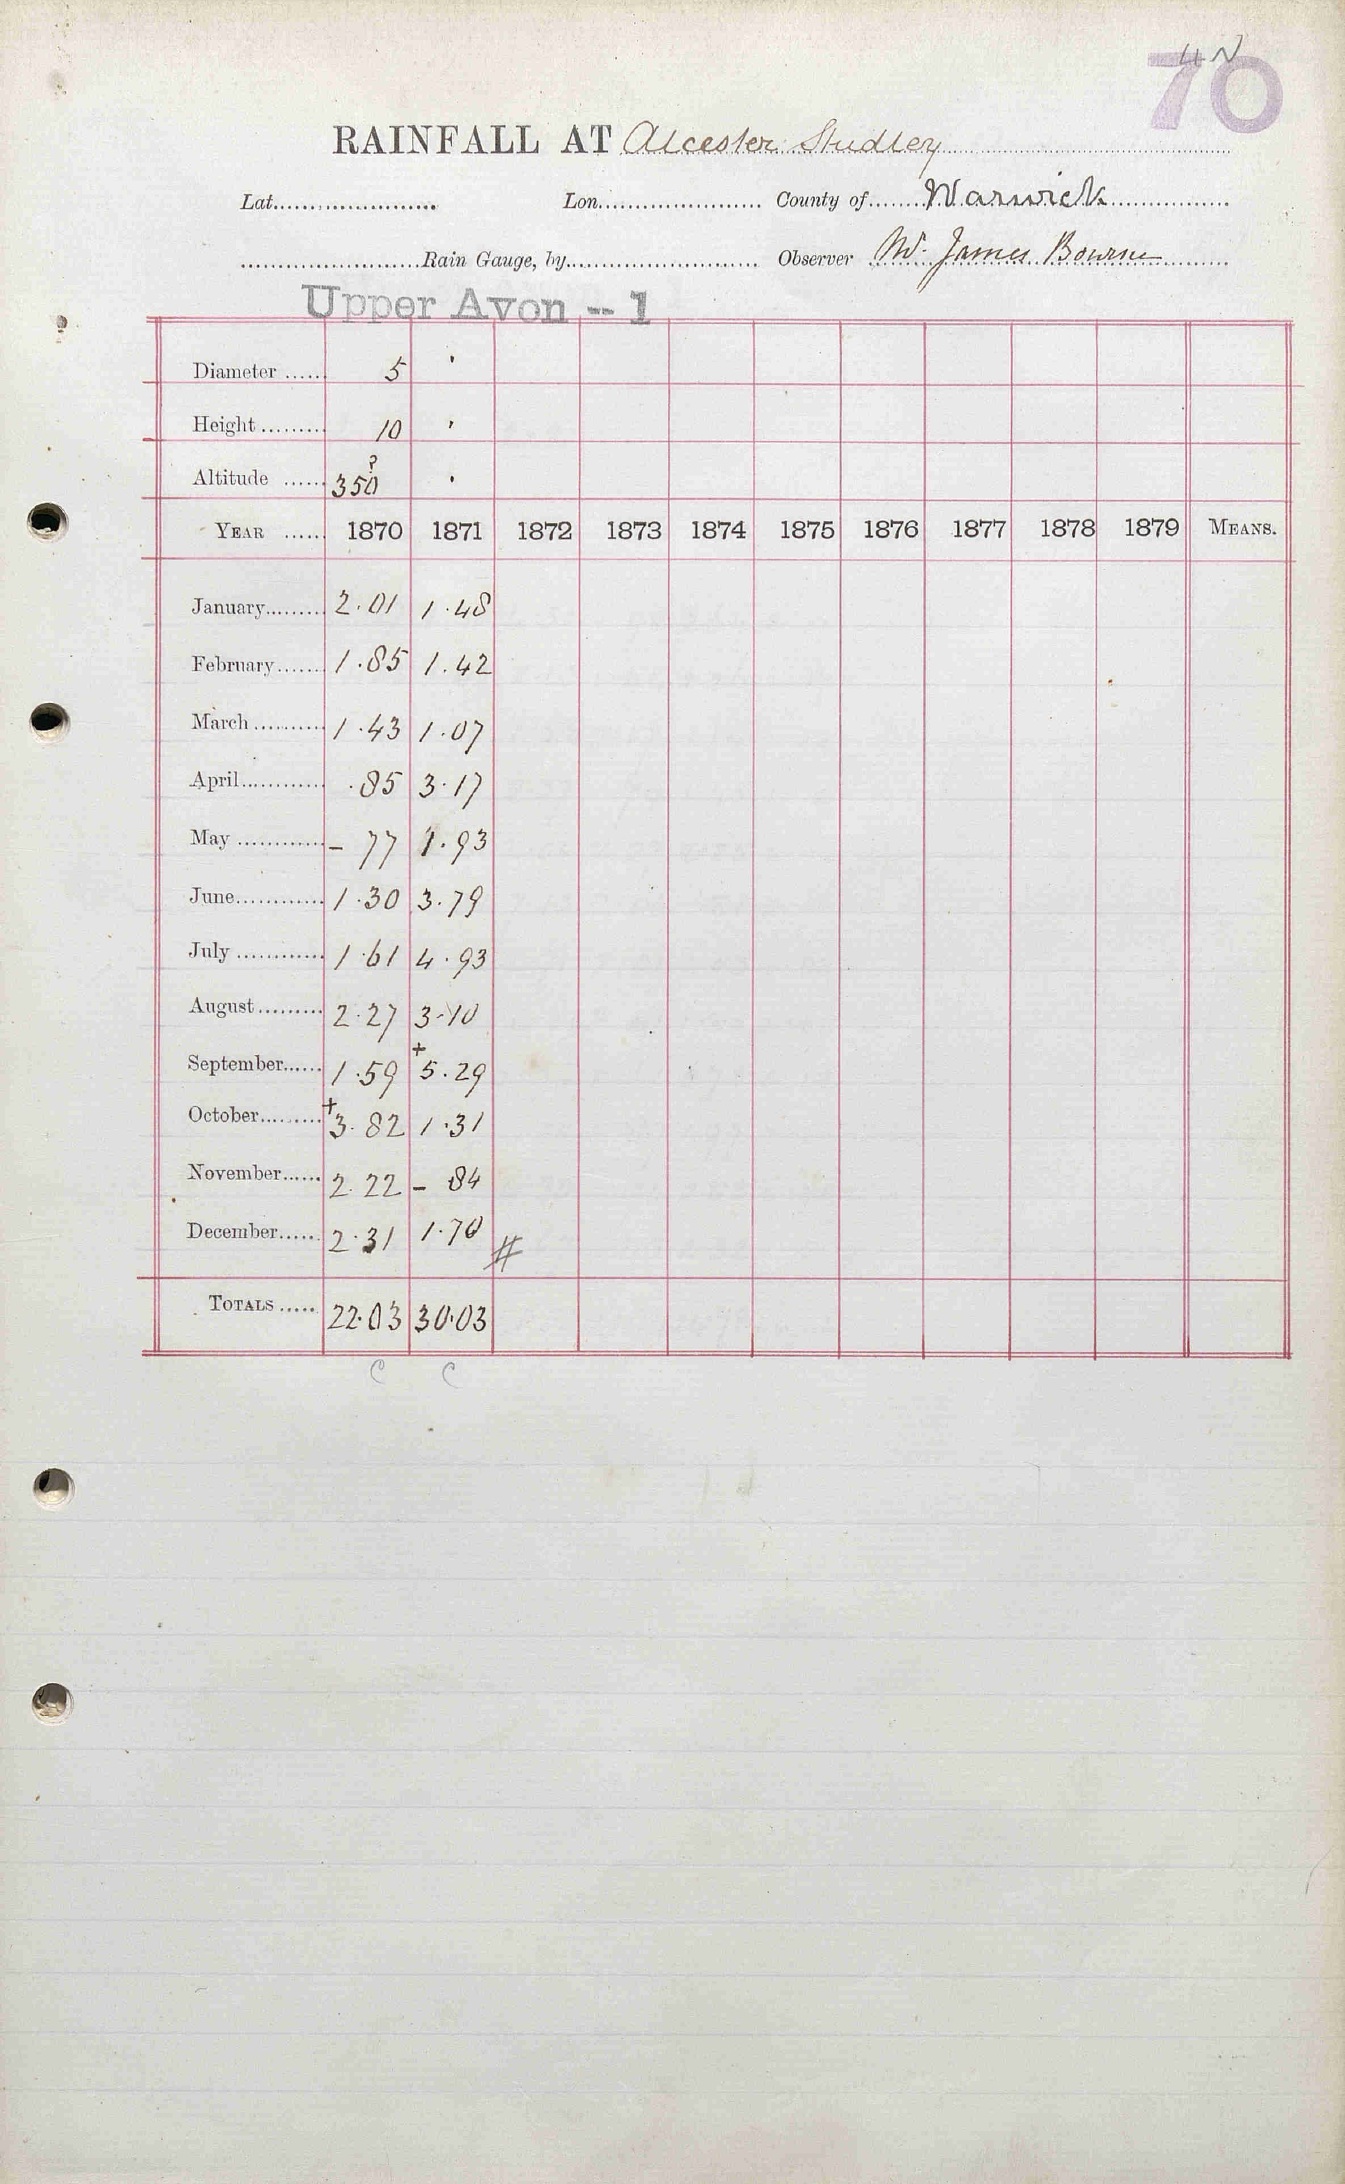 4 N
70
RAINFALL AT Alcester Studley
Lat. Lon. County of Warwick
Rain Gauge, by Observer Mr. James Bourne
Upper Avon -- 1
Diameter 5 '
Height 10 '
?
Altitude 350 '
YEAR 1870 1871 1872 1873 1874 1875 1876 1877 1878 1879 MEANS.
January 2.01 1.48
February 1.85 1.42
March 1.43 1.07
April .85 3.17
May - 77 1.93
June 1.30 3.79
July 1.61 4.93
August 2.27 3.10
September 1.59 +5.29
October +3.82 1.31
November 2.22 - 84
December 2.31 1.70 #
TOTALS 22.03 30.03
C C